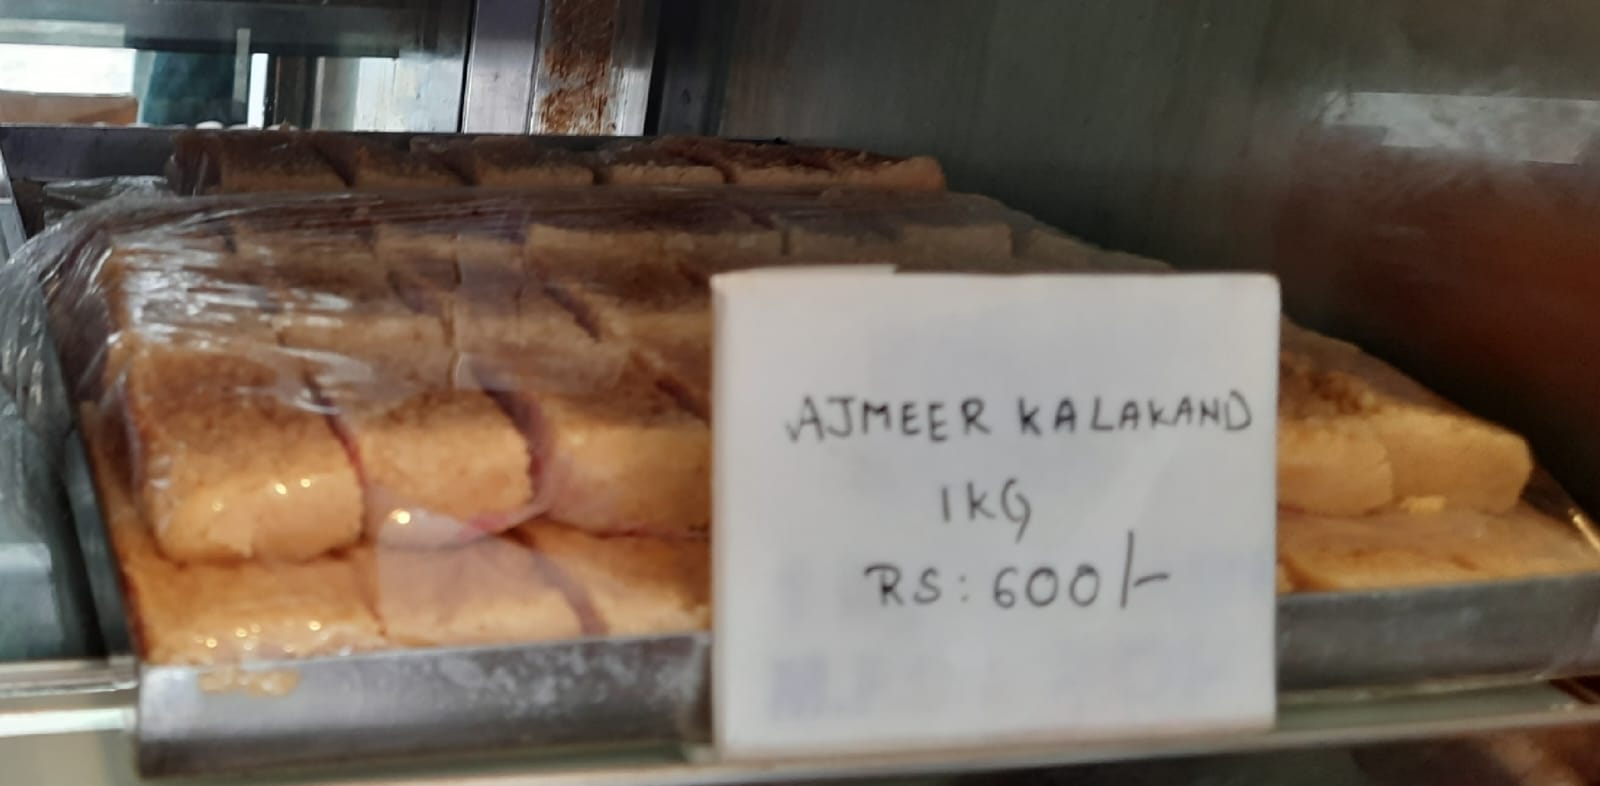 AJMEER KALAKAND
1KG
RS: 600/-